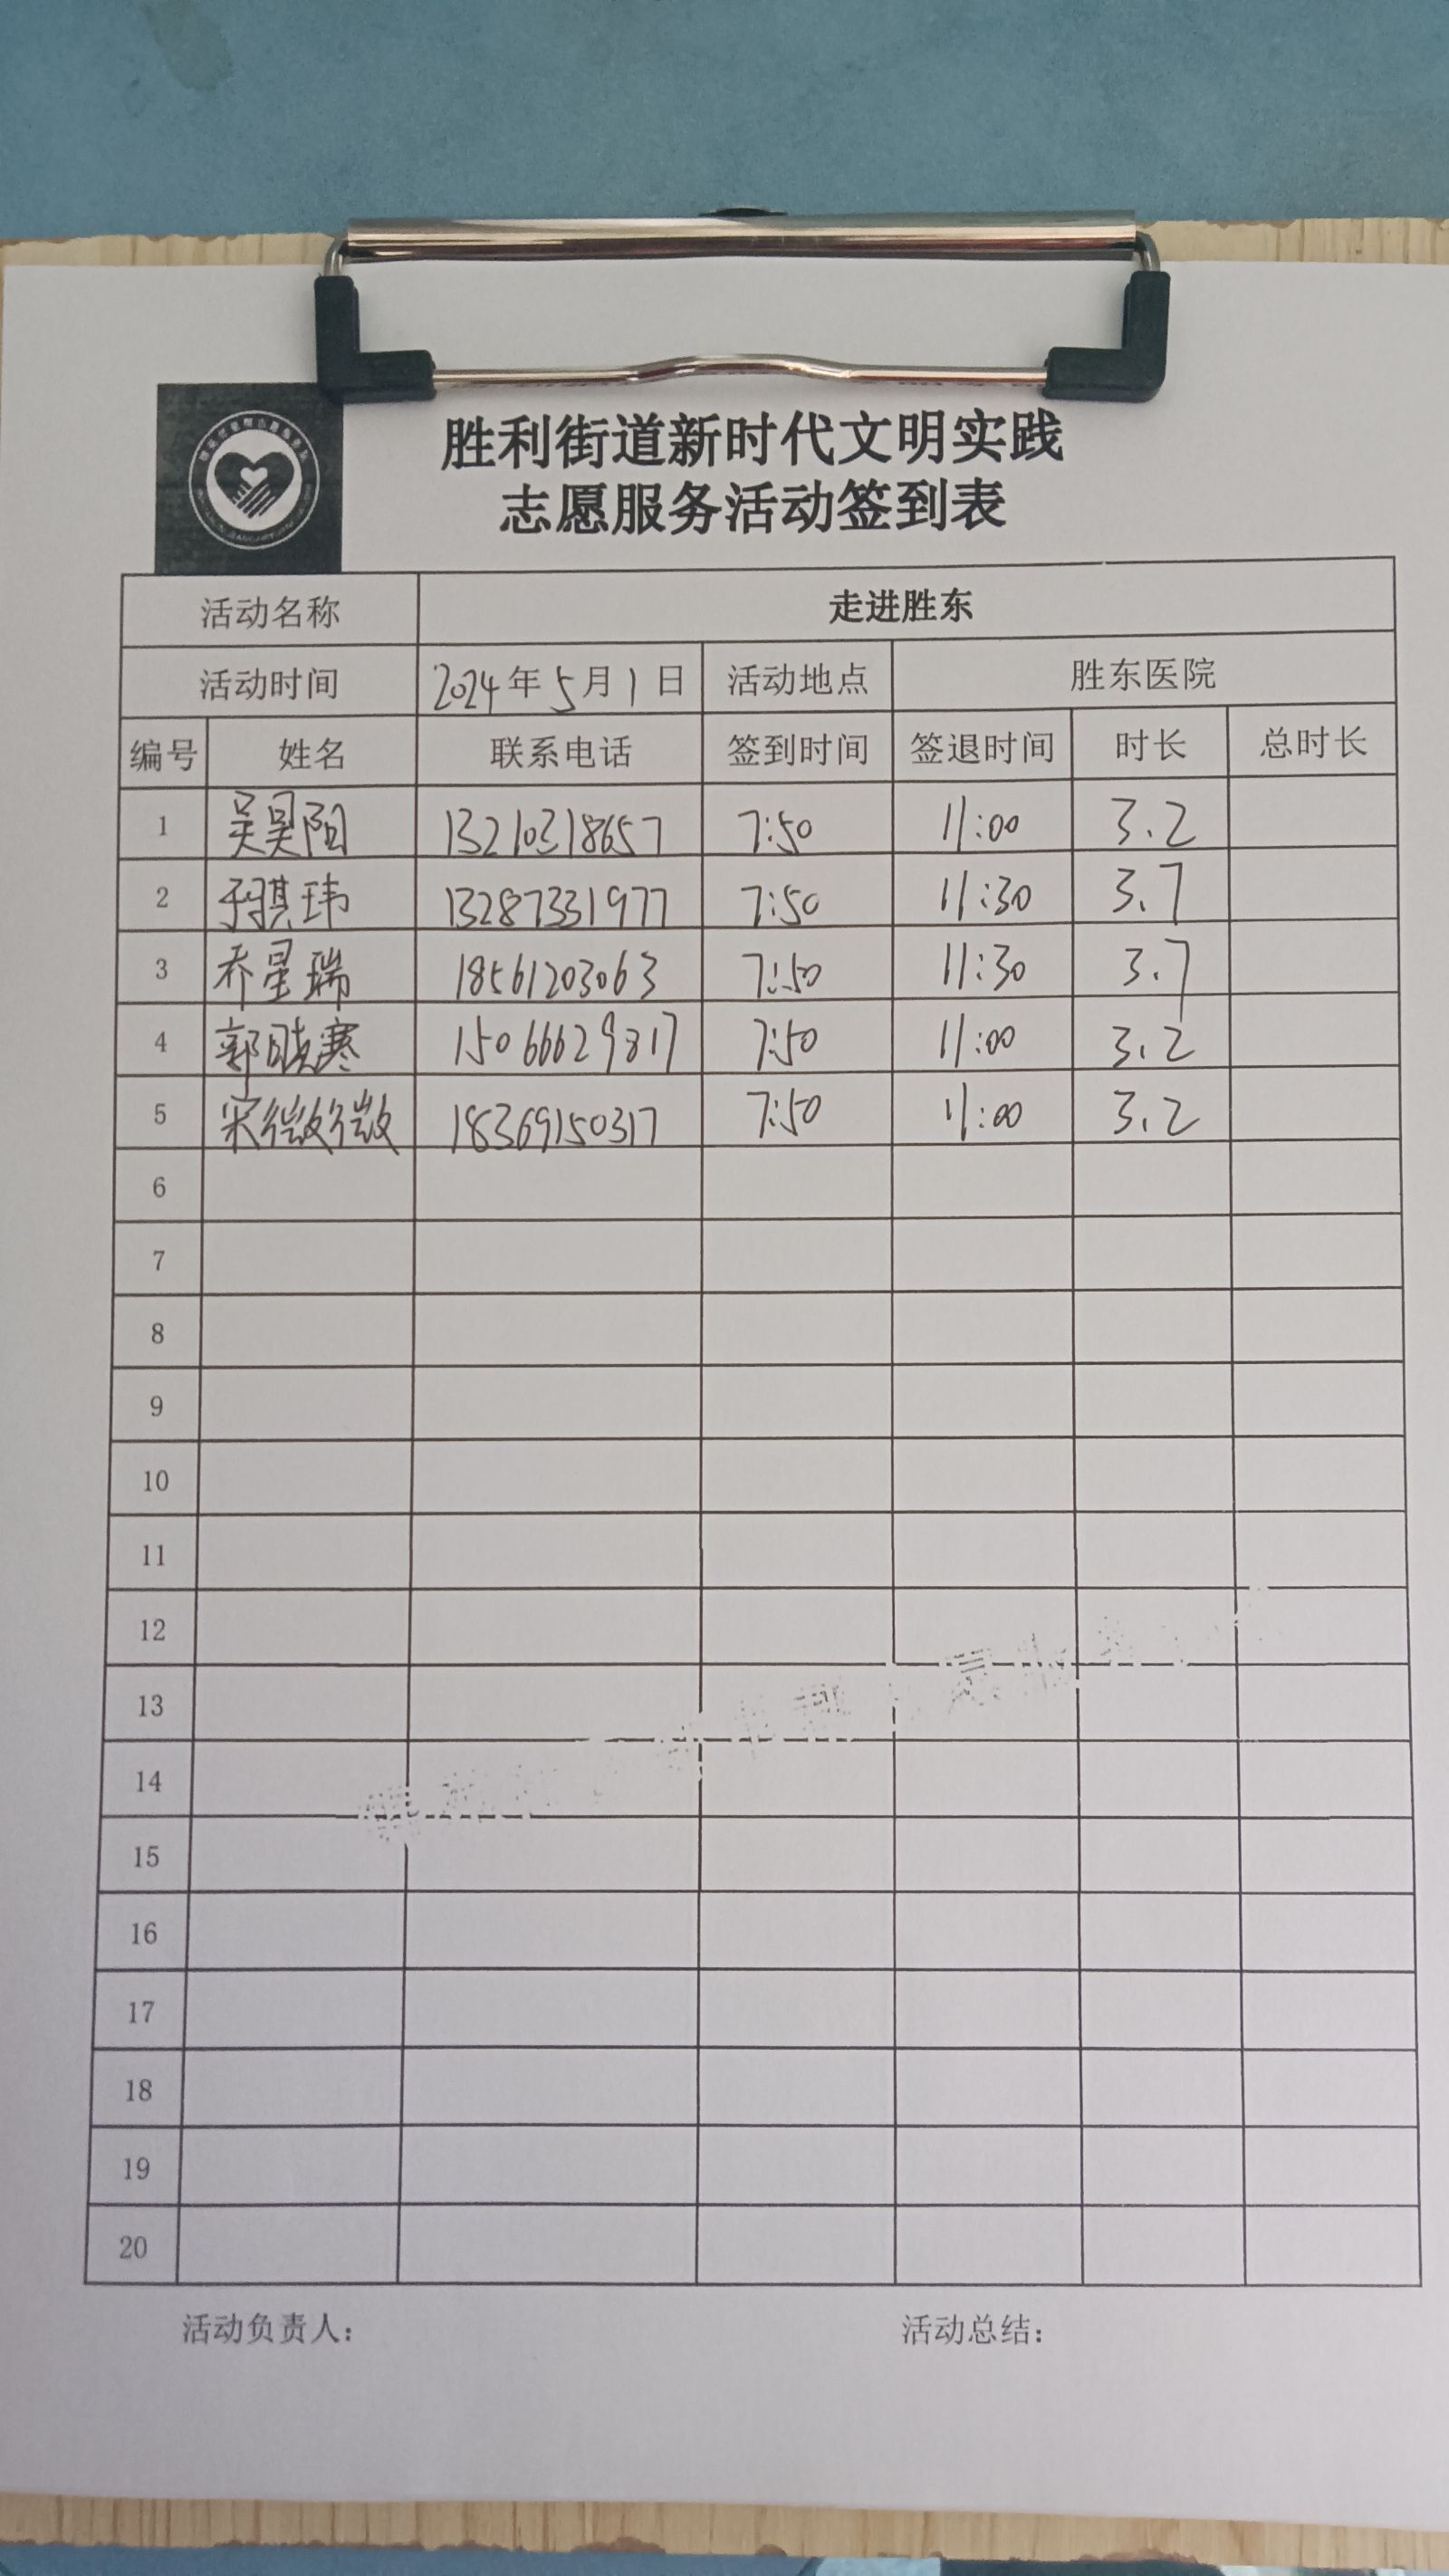 胜利街道新时代文明实践
志愿服务活动签到表
活动名称 走进胜东
活动时间 2024年5月1日 活动地点 胜东医院
编号 姓名 联系电话 签到时间 签退时间 时长 总时长
1 吴昊阳 13210318657 7:50 11:00 3.2
2 于骐玮 13287331977 7:50 11:30 3.7
3 乔星瑞 18561203063 7:50 11:30 3.7
4 郭晓寒 15066629817 7:50 11:00 3.2
5 宋微微 18369150317 7:50 11:00 3.2
6
7
8
9
10
11
12
13
14
15
16
17
18
19
20
活动负责人： 活动总结：